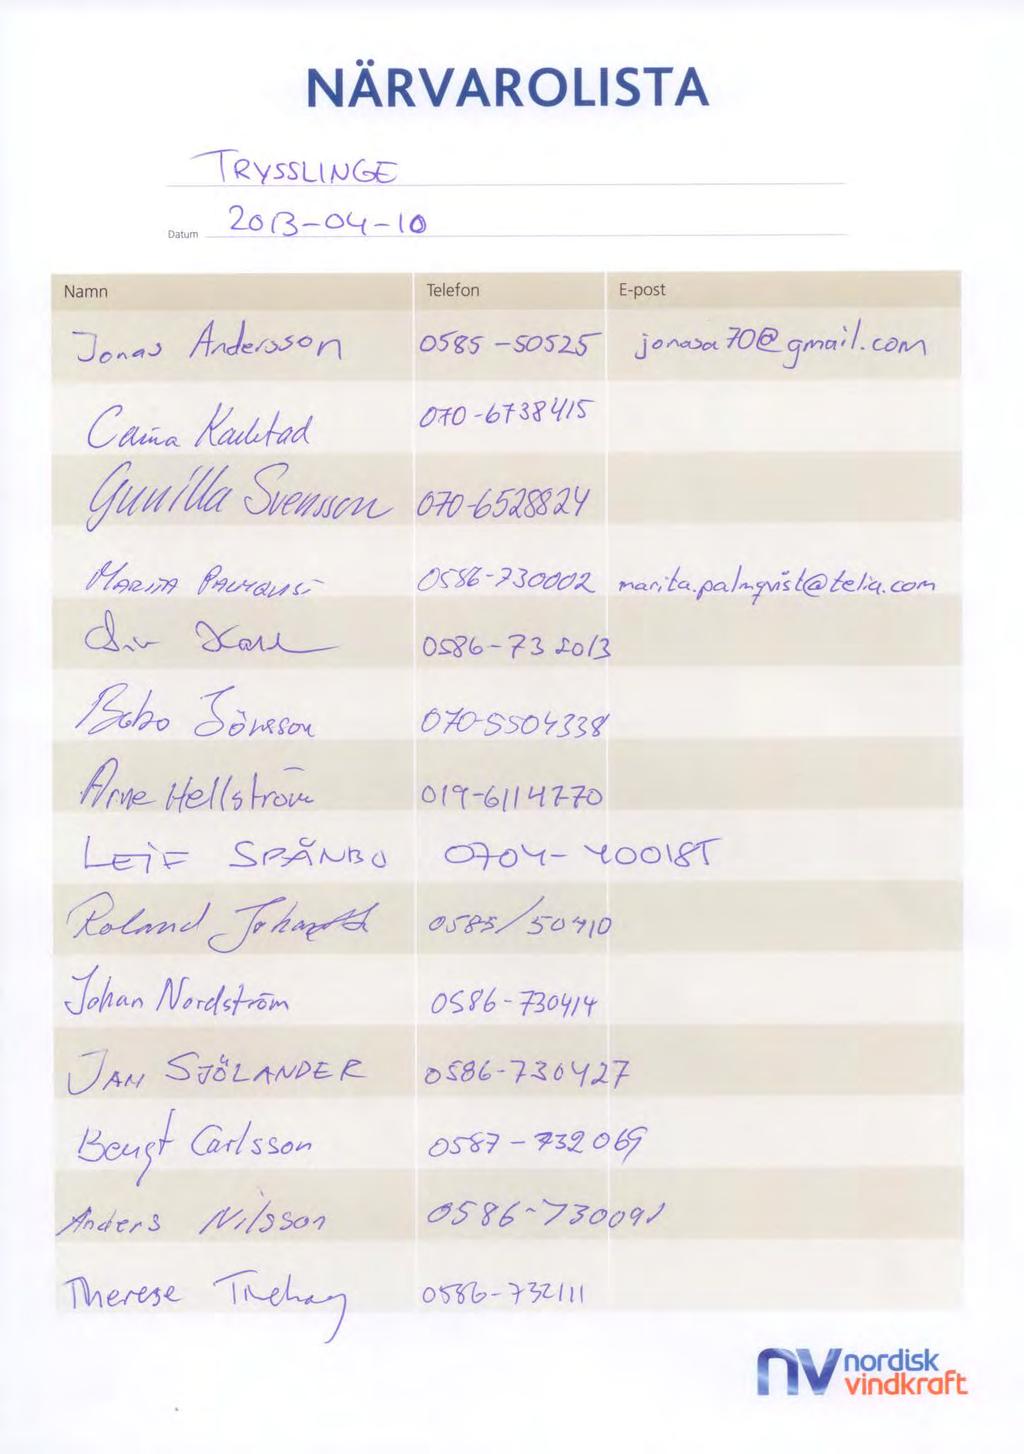 NÄRVAROLISTA
TRYSSLINGE
Datum 2013-04-10
Namn Telefon E-post
Jonas Andersson 0585-50525 jonasa70@gmail.com
Karlstad 070-6738415
Gunilla Svensson 070-6528824
MARITA PALMQVIST 0586-730002 marita.palmqvist@telia.com
0586-73 2013
Bobo Jönsson 070-5504338
Arne Hellström 019-6114770
LEIF SPÅNBO 0704-400185
Roland 0585/50410
Johan Nordström 0586-730414
JAN SJÖLANDER 0586-730427
Bengt Carlsson 0587-732069
Anders Nilsson 0586-730091
Therese 0586-732111
nv nordisk
vindkraft